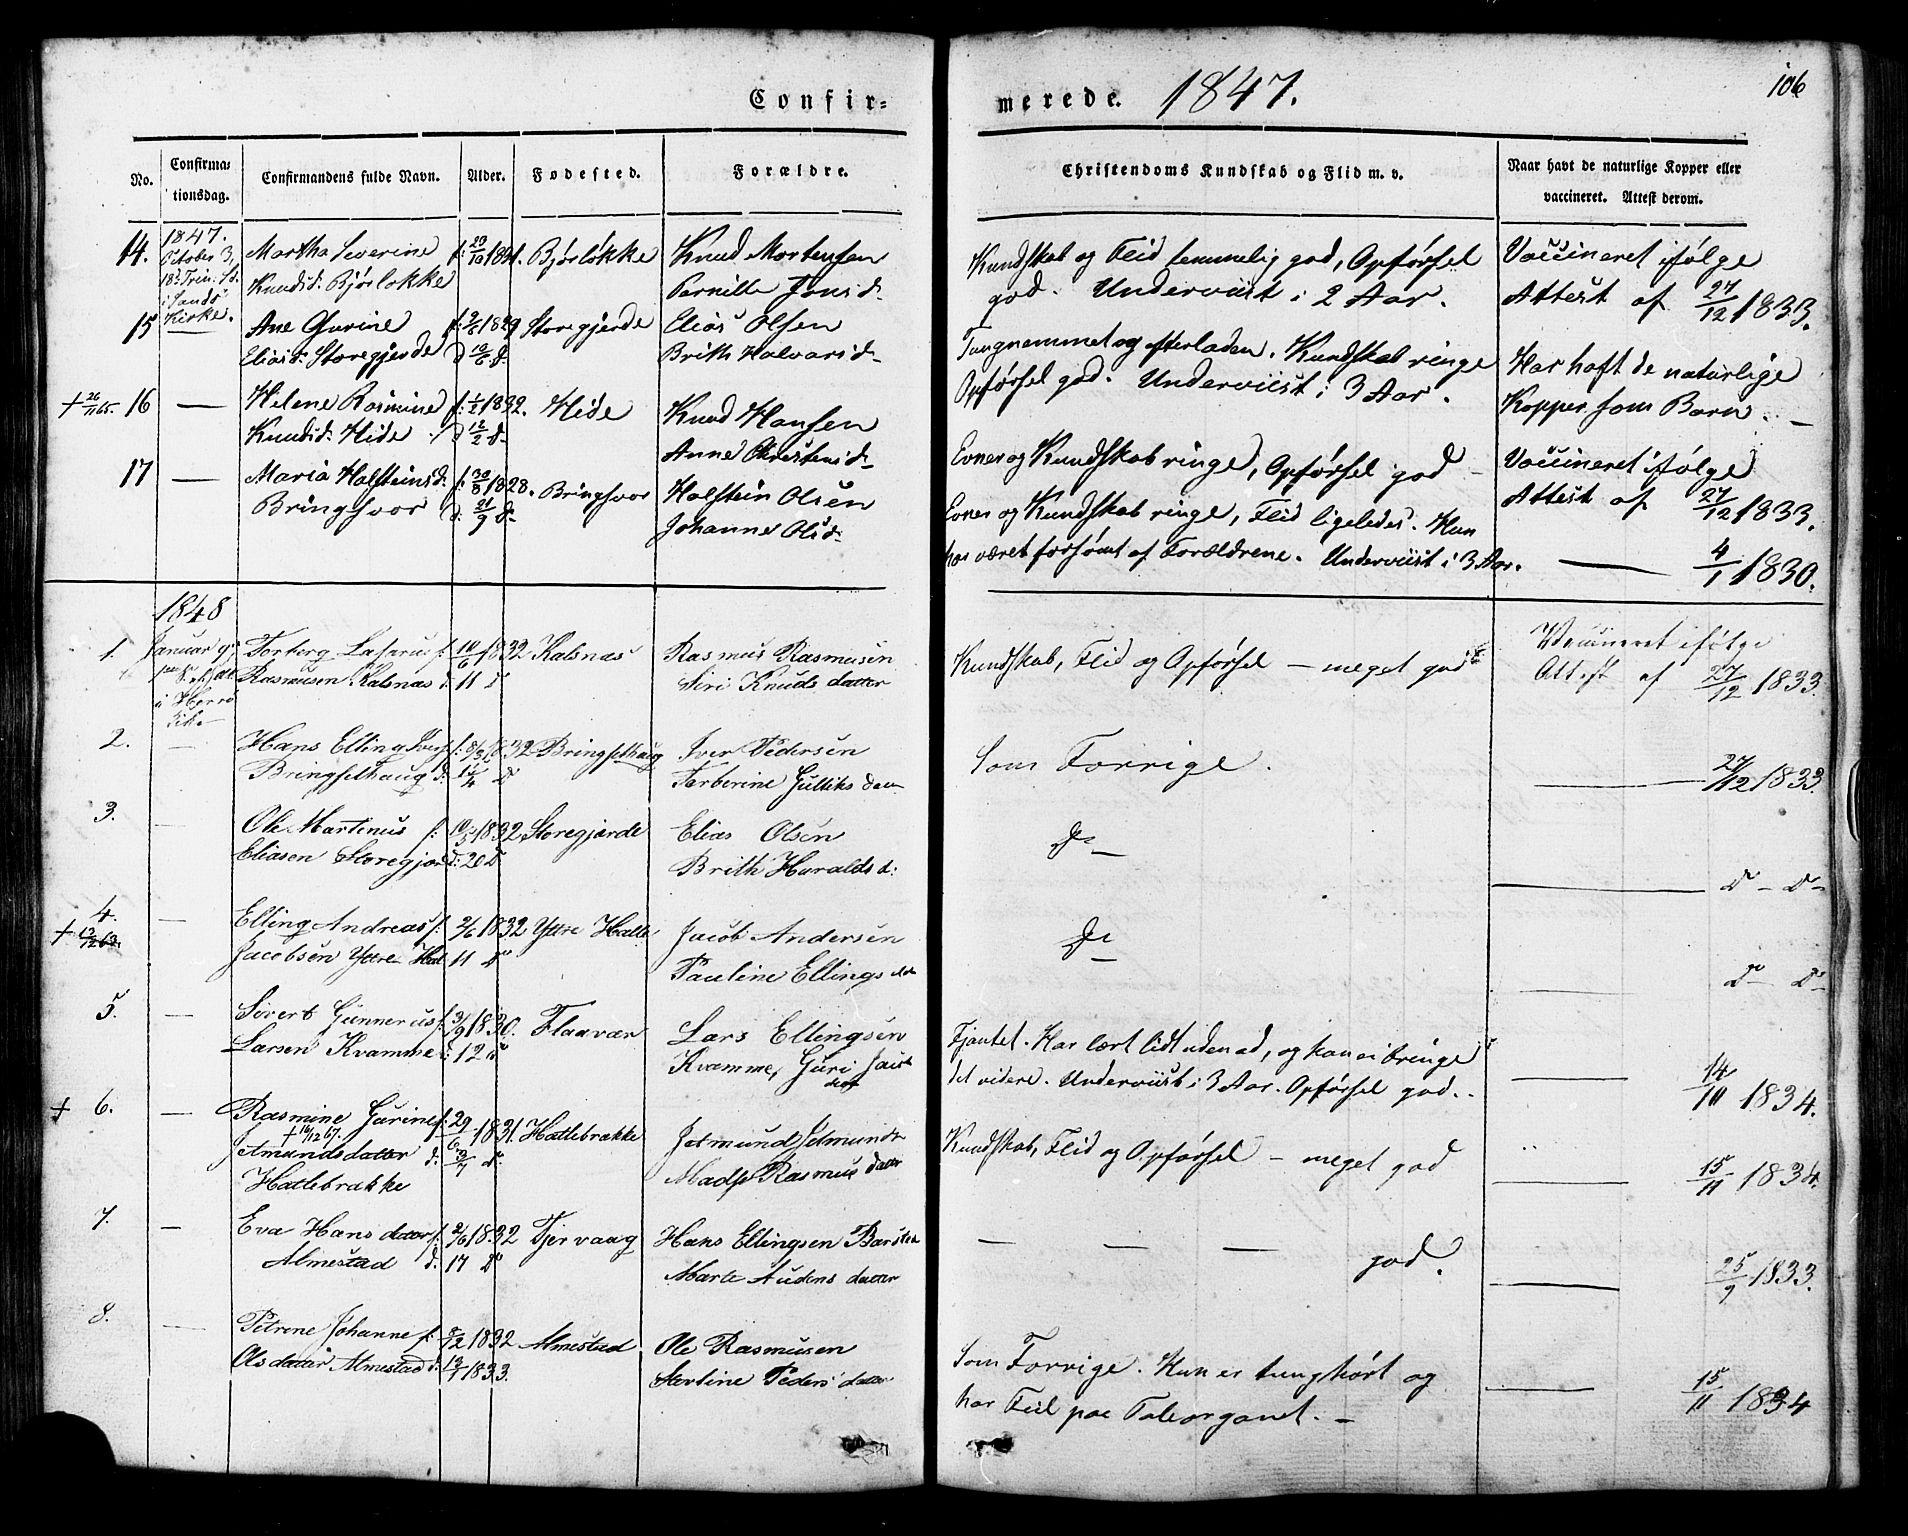 Confir-
merede. 1847.
106
No.
Confirma-
tionsdag.
Confirmandens fulde Navn.
Alder.
Fødested.
Forældre.
Christendoms Kundskab og Flid m. v.
Naar havt de naturlige Kopper eller
vaccineret. Attest derom.
14.
1847.
October 3,
18de Trin. S.
i Sands
Kirke.
Martha Severine
Knudsd. Bjørløkke
f. 29/10 1831.
Bjørløkke
Knud Mortensen
Pernille Jonsd.
Kundskab og Flid temmelig god, Opførsel
god. Underviist i 2 Aar.
Vaccineret ifølge
Attest af 27/12 1833.
15
Ane Gurine
Eliasd. Storegjerde
f. 2/6 1829
d. 10/6 d.
Storegjerde
Elias Olsen
Brith Halvarsd.
Tungnemmet og efterladen. Kundskab ringe
Opførsel god. Underviist i 3 Aar.
Har haft de naturlige
Kopper som Barn. —
+ 26/11 65.
16 —
Helene Rasmine
Knudsd. Hide
f. 1/2 1832.
d. 12/2 d.
Hide
Knud Hansen
Anne Christensd.
Evner og Kundskab ringe, Opførsel god —
Vaccineret ifølge
Attest af 27/12 1833.
17 —
Maria Halsteinsd.
Bringsvor
f. 30/8 1828.
d. 21/9 d.
Bringsvor
Halstein Olsen
Johanne Olsd.
Evner og Kundskab ringe, Flid ligeledes. Hun
har været forsømt af Forældrene. Underviist i 3 Aar.
— 4/1 1830.
1848
1.
Januar 9.
i Herrø
Kirke
Torberg Lasarus
Rasmusen Kalsnas
f. 10/6 1832
d. 11 d
Kalsnas
Rasmus Rasmusen
Siri Knuds datter
Kundskab, Flid og Opførsel — meget god
Vaccineret ifølge
Attest af 27/12 1833.
2. —
Hans Elling Ivers
Bringselhaug
f. 8/3 1832
d. 1/4 d
Bringselhaug
Iver Pedersen
Tarberine Gulliks dam
Som Forrige.
— 27/12 1833.
3. —
Ole Martinus
Eliasen Storegjær
f. 10/5 1832
d. 20 d
Storegjærde
Elias Olsen
Brith Haralds d:
do —
— do — do —
4. —
+ 13/12 63.
Elling Andreas
Jacobsen Yttre Hat
f. 2/6 1832
11 do
Yttre Hatle
Jacob Andersen
Pauline Ellings dtr
do —
— do — do —
5. —
Sivert Gunnerus
Larsen Kvamme
f. 3/9 1830.
d. 12 do
Flaavær
Lars Ellingsen
Kvamme, Guri Jais
datt
Fjantet. Har lært lidt udenad, og kan ei bringe
det videre. Underviist i 3 Aar. Opførsel god.
— 14/10 1834.
+ 6. —
Rasmine Gurine
+ 16/12 67.
Jetmundsdatter
Hatlebrække
f. 29/6 1831.
d. 3/7 d.
Hatlebrække
Jetmund Jetmunds
Mads Rasmus datter
Kundskab, Flid og Opførsel — meget god
— 15/11 1834.
7. —
Eva Hans datter
Almestad
f. 2/6 1832
d. 17 do
Tjervaag
Hans Ellingsen Barsten
Marte Audens datter
— — — god.
— 25/9 1833.
8. —
Petrine Johanne
Ols datter Almestad
f. 8/12 1832
d. 13/1 1833.
Almestad
Ole Rasmusen
Severine Peders datter
Som Forrige. Hun er tunghørt og
har Feil paa Taleorganet. —
— 15/11 1834